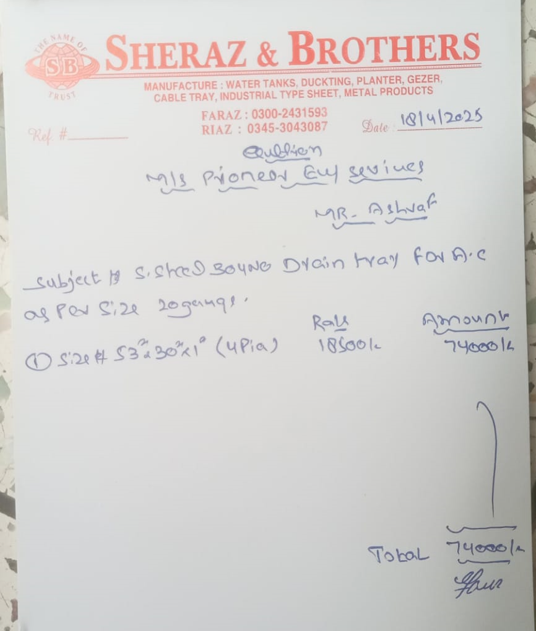 THE NAME OF
SB
TRUST
SHERAZ & BROTHERS
MANUFACTURE : WATER TANKS, DUCKTING, PLANTER, GEZER,
CABLE TRAY, INDUSTRIAL TYPE SHEET, METAL PRODUCTS
FARAZ : 0300-2431593
RIAZ : 0345-3043087
Ref. #
Date 18/4/2025
M/s Pioneer Eng services
MR. Ashraf
Subject # S.Steel 304 NO Drain tray For A.C
as Per Size 20 gauge.
Rate Amount
① Size # 53"x30"x1" (4Pis) 18500/- 74000/-
Total 74000/-